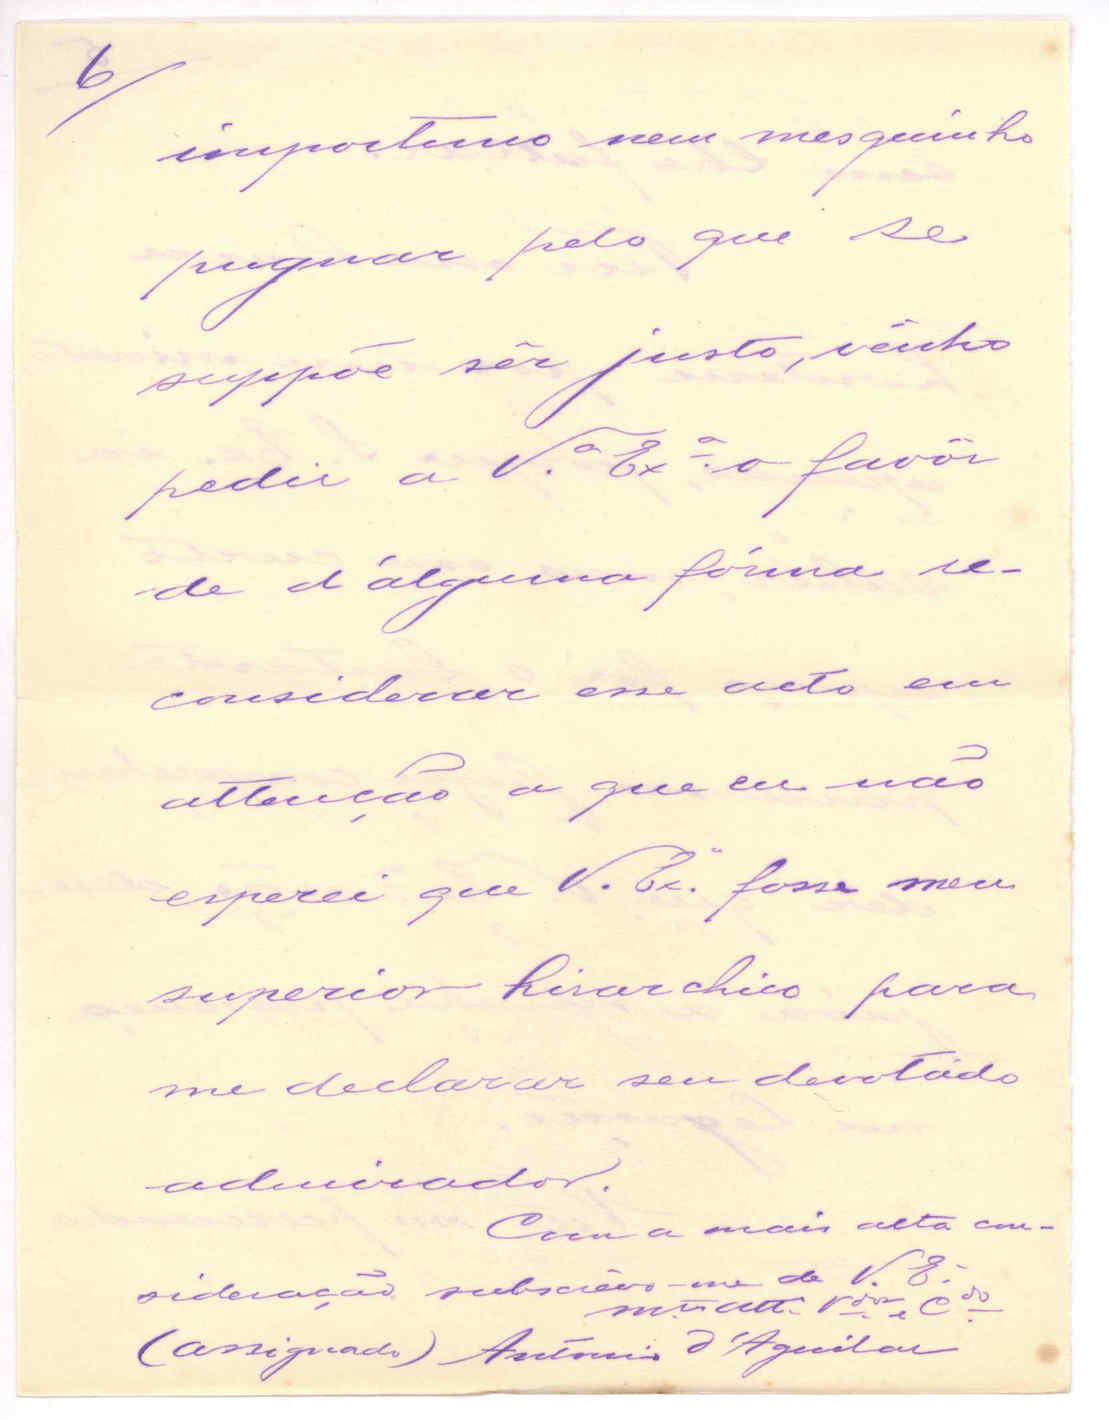 6/
importuno nem mesquinho
pugnar pelo que se
suppõe sêr justo, vênho
pedir a V.ª Exª. o favôr
de d'álguma fórma re-
considerar esse acto em
attenção a que eu não
esperei que V. Ex.ª fosse meu
superior hirarchico para
me declarar seu devotádo
admirador.
Com a mais alta con-
sideração subscrevo-me de V. E.ª
m.to att.º V.dor e C.do
(assignado) António d'Aguilar